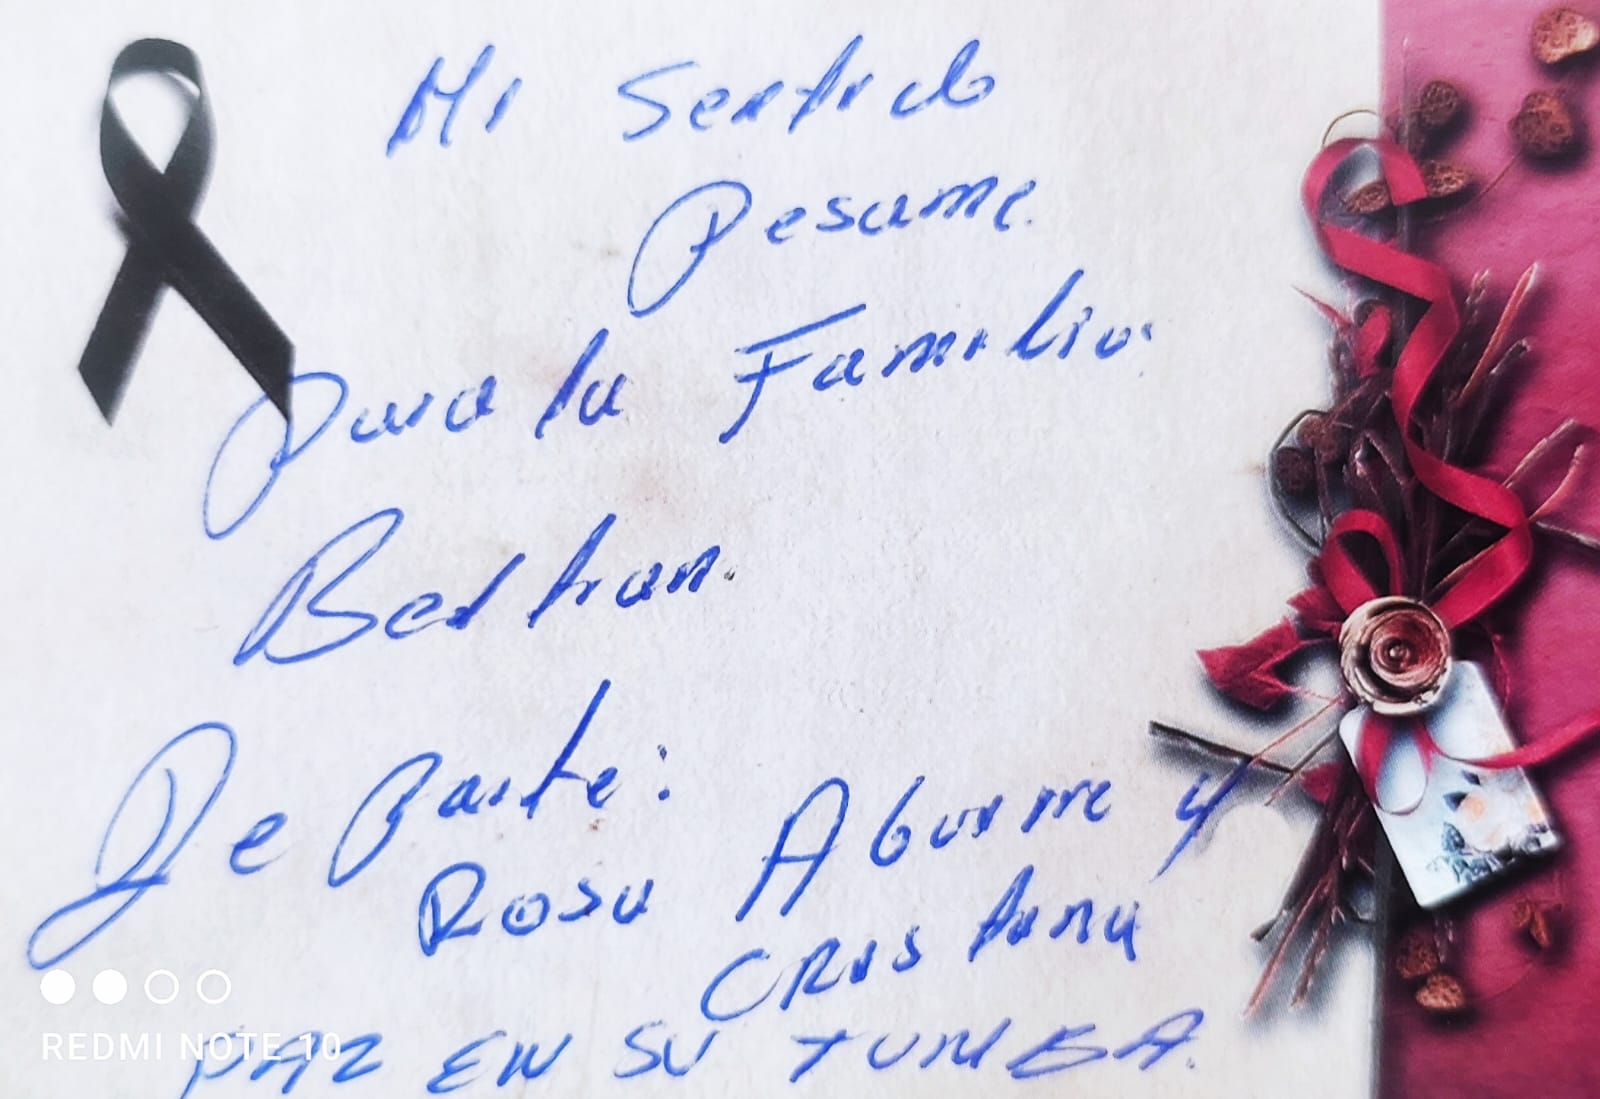 Mi Sentido
Pesame.
Para la Familia.
Beltran.
De Parte:
Rosa Aguirre y
CRistina
PAZ EN SU TUMBA.
REDMI NOTE 10